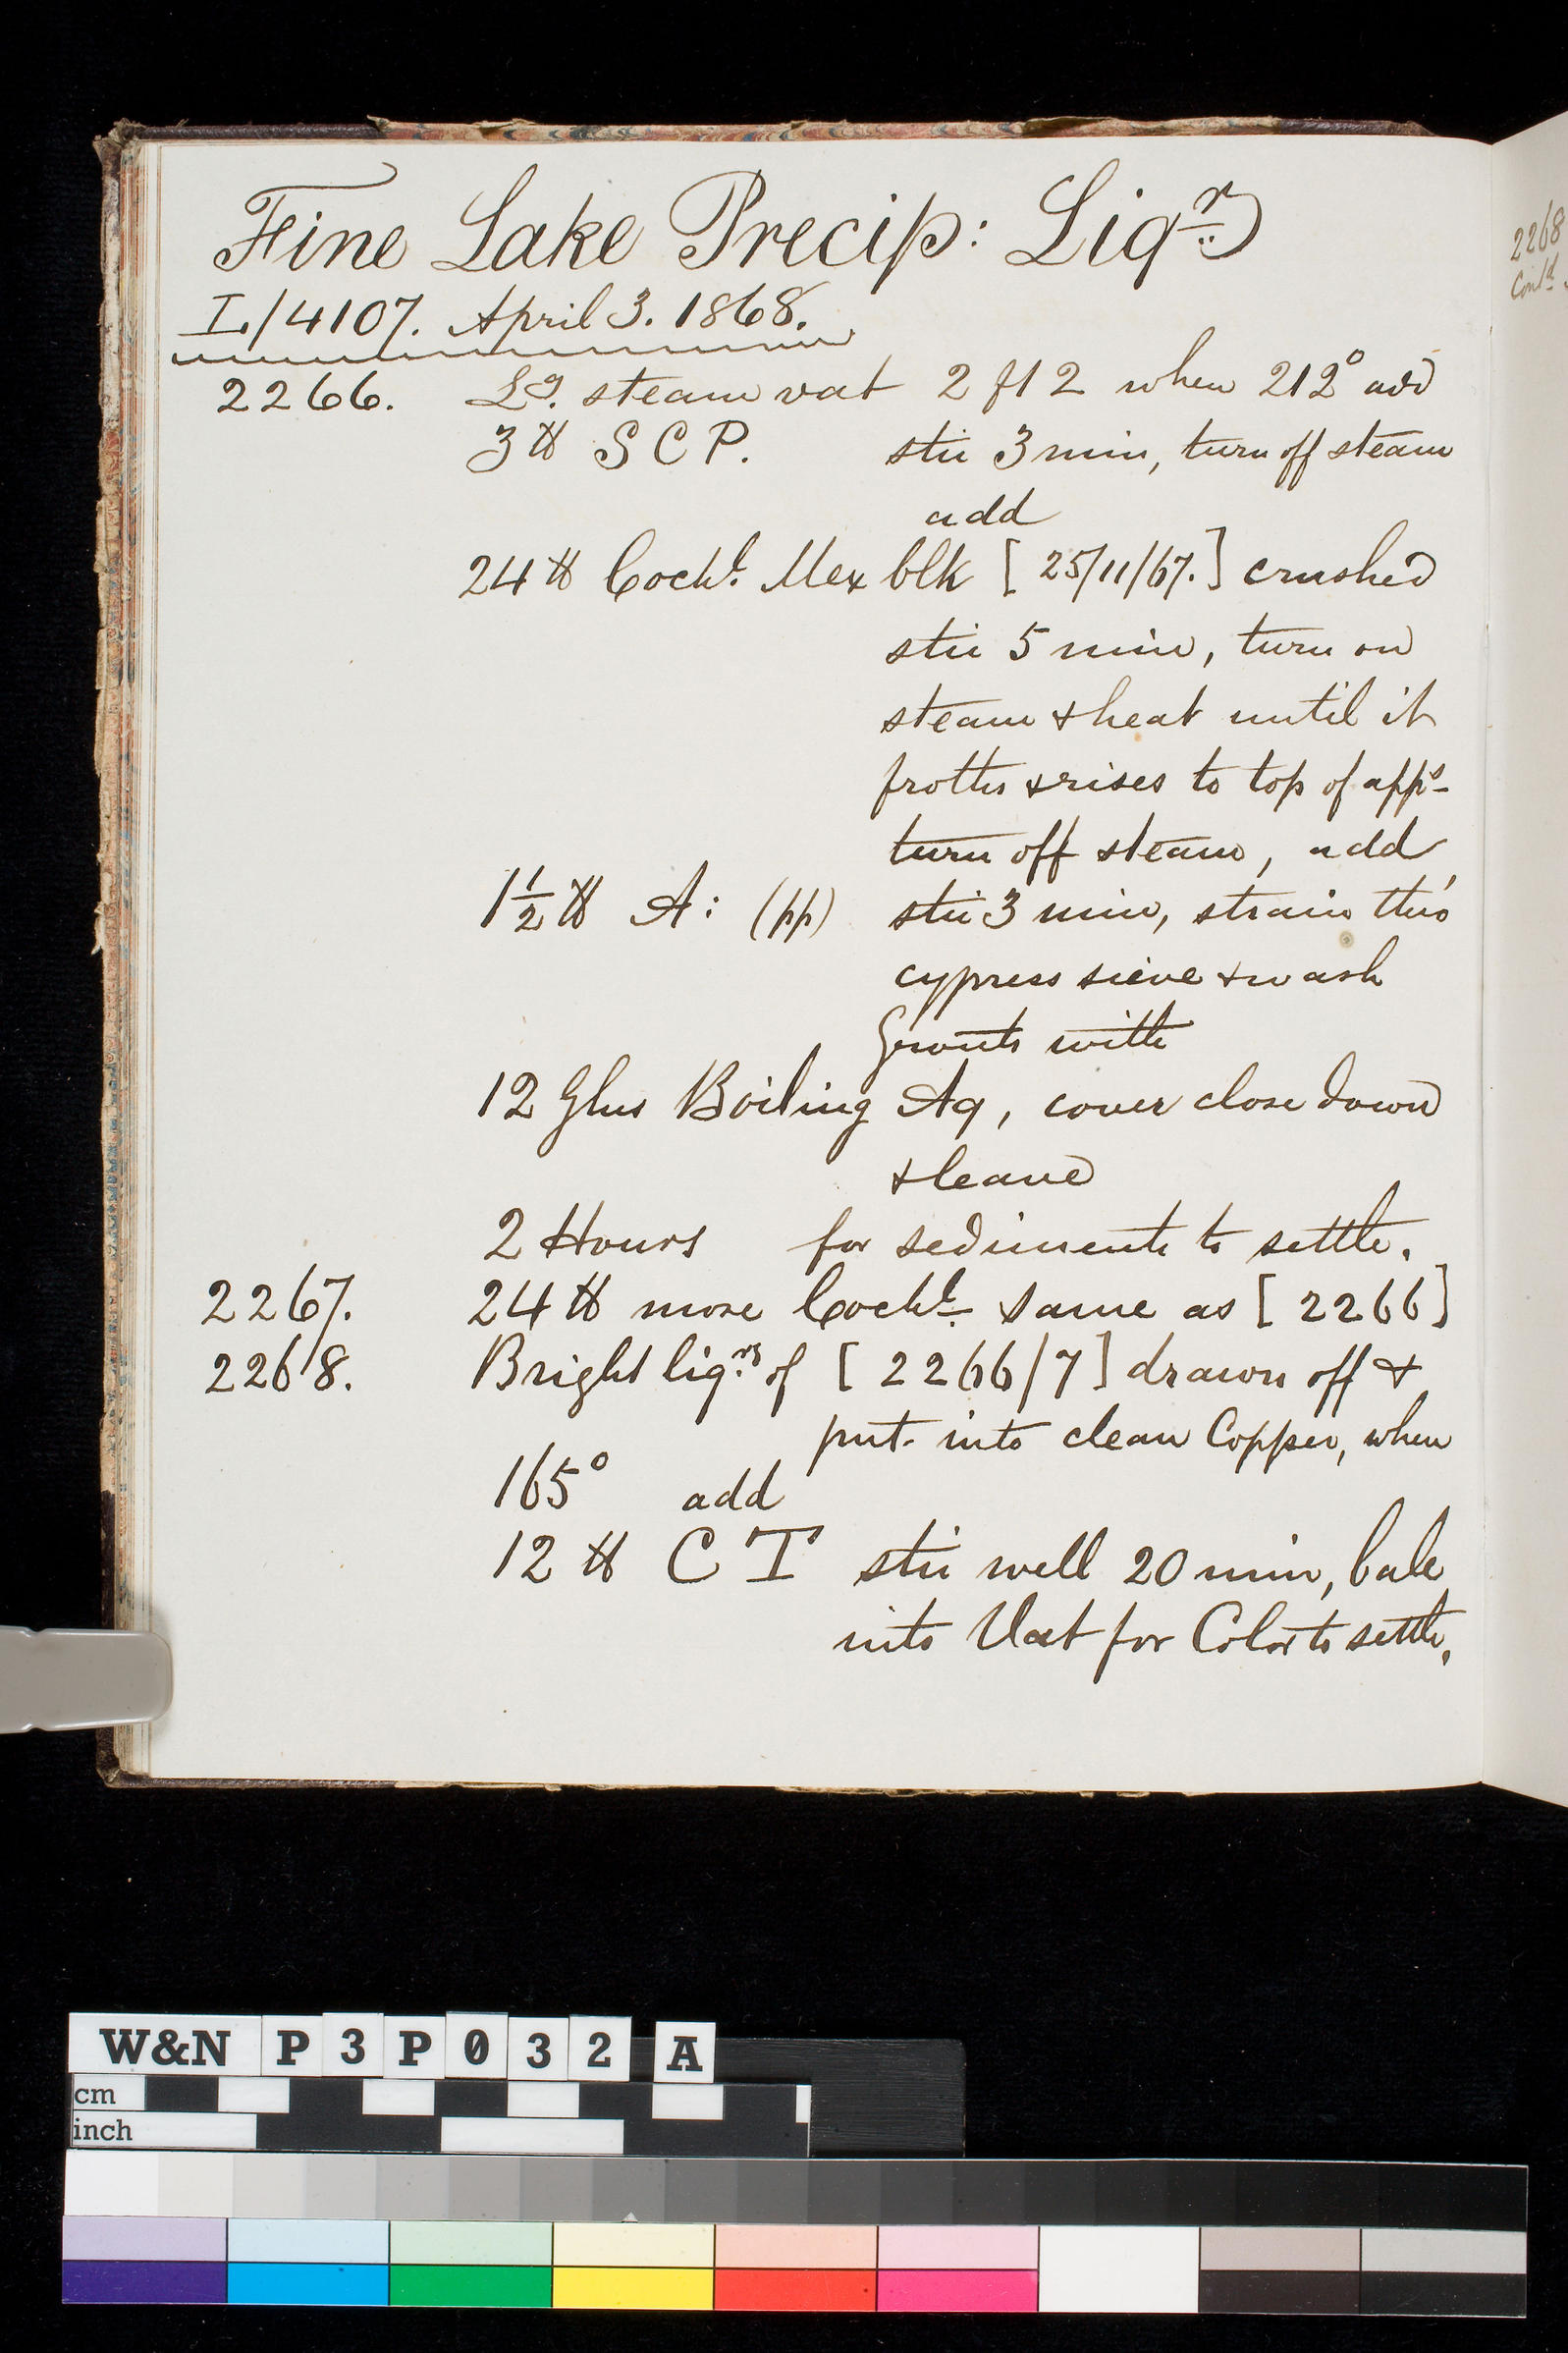 Fine Lake Precip: Liqr
L/4107. April 3. 1868.
2266. Lg. steam vat 2 f 1 2 when 212° add
3 lb S C P. stir 3 min, turn off steam
add
24 lb Cochl. Mex blk [25/11/67.] crushed
stir 5 min, turn on
steam & heat until it
froths & rises to top of apps
turn off steam, add
1 1/2 lb A: (pp) stir 3 min, strain thro'
cypress sieve & wash
Grouts with
12 Glns Boiling Aq, cover close down
& leave
2 Hours for sediments to settle.
2267. 24 lb more Cochl. same as [2266]
2268. Bright liqrs of [2266/7] drawn off &
put into clean Copper, when
165° add
12 lb C T stir well 20 min, bale
into Vat for Color to settle.
2268
Contd
W&N P3P032 A
cm
inch